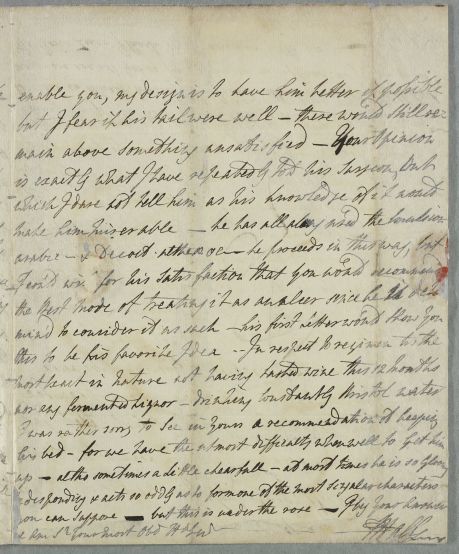 enable you, my design is to have him better if possible
but I fear if his tail were well – there would still re-
main above something unsatisfied – Your Opinion
is exactly what I have repeatedly told his Surgeon, but
which I dare not tell him as his knowledge of it would
make him miserable – he has all along used the
arabic – & Decoct. – he proceeds in this way, but
I could wish for his satisfaction that you would recommend
the best mode of treating it as an ulcer since he is
mind to consider it as such – his first letter would show you
this to be his favorite Idea – In respect to regimen to the
most exact in nature not having tasted wine this 12 months
nor any fermented liquor – drinking constantly Bristol water
I was rather sorry to see in yours a recommendation of keeping
his bed – for we have the utmost difficulty when well to get him
up – altho sometimes a little chearfull – at most times he is so gloomy
desponding & acts so oddly as to form one of the most singular characters
you can suppose – but this is under the rose – I beg your
& am Sr Your most Obd